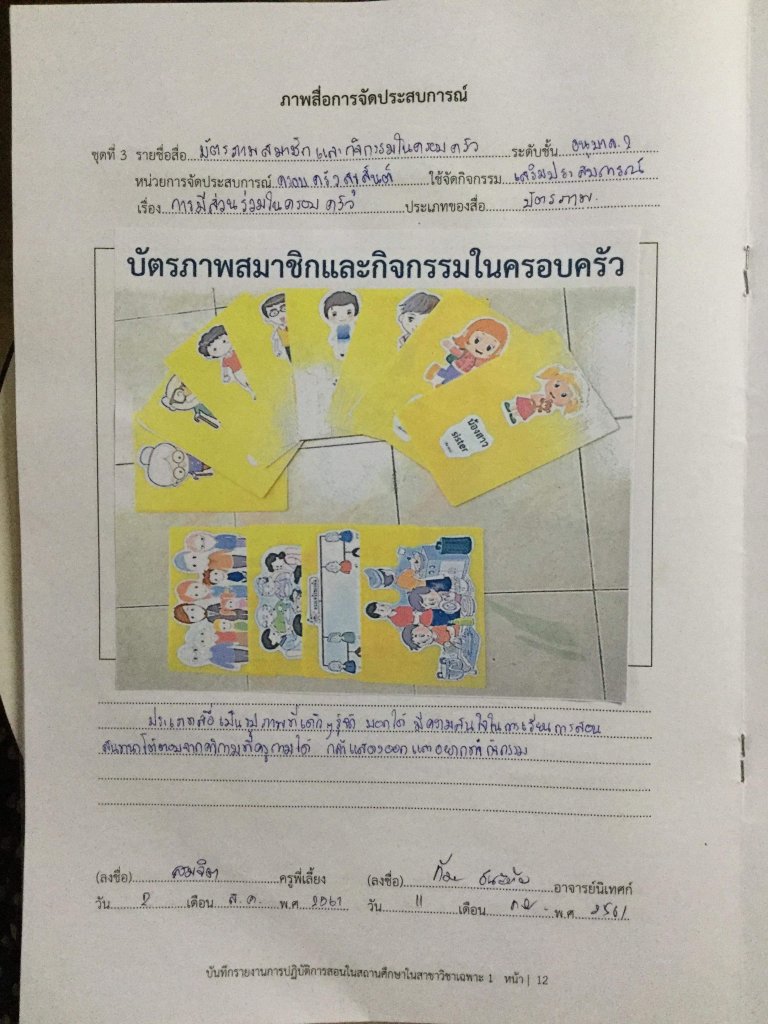 ภาพสื่อการจัดประสบการณ์
ชุดที่ 3 รายชื่อสื่อ บัตรภาพสมาชิกและกิจกรรมในครอบครัว ระดับชั้น อนุบาล 2
หน่วยการจัดประสบการณ์ ครอบครัวสุขสันต์ ใช้จัดกิจกรรม เสริมประสบการณ์
เรื่อง การมีส่วนร่วมในครอบครัว ประเภทของสื่อ บัตรภาพ
บัตรภาพสมาชิกและกิจกรรมในครอบครัว
น้องสาว
sister
ประเภทสื่อเป็นรูปภาพที่เด็กๆรู้จัก บอกได้ มีความสนใจในการเรียนการสอน
สนทนาโต้ตอบจากคำถามที่ครูถามได้ กล้าแสดงออกและอยากทำกิจกรรม
(ลงชื่อ) สมจิตา ครูพี่เลี้ยง (ลงชื่อ) อาจารย์นิเทศก์
วัน 2 เดือน ส.ค. พ.ศ. 2561 วัน 11 เดือน กย. พ.ศ. 2561
บันทึกรายงานการปฏิบัติการสอนในสถานศึกษาในสาขาวิชาเฉพาะ 1 หน้า | 12